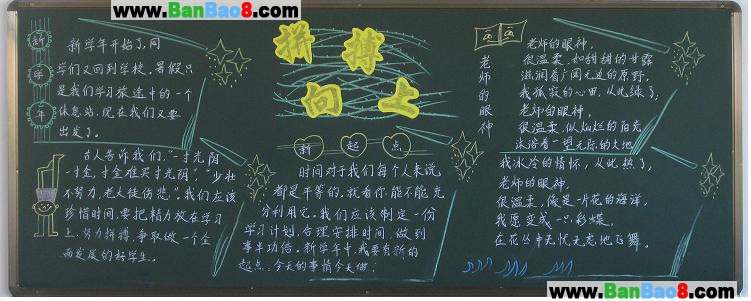 www.BanBao8.com
www.BanBao8.com
新学年
新学年开始了,同
学们又回到学校。暑假只
是我们学习旅途中的一个
休息站,现在我们又要
出发了。
古人告诉我们,"一寸光阴
一寸金,寸金难买寸光阴","少壮
不努力,老大徒伤悲",我们应该
珍惜时间,要把精力放在学习
上,努力拼搏,争取做一个全
面发展的好学生。
拼搏
向上
新起点
时间对于我们每个人来说
都是平等的,就看你能不能充
分利用它。我们应该制定一份
学习计划,合理安排时间,做到
事半功倍。新学年中,我要有新的
起点,今天的事情今天做!
老师的眼神
老师的眼神,
很温柔,如甜甜的甘露
滋润着广阔无边的原野,
我孤寂的心田,从此绿了;
老师的眼神,
很温柔,似灿烂的阳光
沐浴着一望无际的大地
我冰冷的情怀,从此热了;
老师的眼神,
很温柔,像是一片花的海洋,
我愿变成一只彩蝶,
在花丛中无忧无虑地飞舞。
www.BanBao8.com
www.BanBao8.com